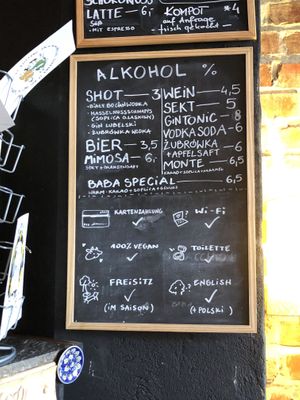 LATTE — 6,-
SÜß
- MIT ESPRESSO
KOMPOT *4
auf Anfrage
frisch gekocht
ALKOHOL %
SHOT — 3
- BIAŁY BOCIAN WODKA
- HASSELNUSSSCHNAPS
(SOPLICA O. LASKOWY)
- GIN LUBELSKI
- ŻUBRÓWKA WODKA
BIER — 3,5
MIMOSA — 6,-
SEKT + ORANGENSAFT
WEIN — 4,5
SEKT — 5
GINTONIC — 8
VODKA SODA — 6
ŻUBRÓWKA
+ APFELSAFT — 6,5
MONTE — 6,5
BABA SPECIAL — 6,5
KARTENZAHLUNG
Wi-Fi
100% VEGAN
TOILETTE
FREISITZ
(IM SAISON)
ENGLISH
(+ POLSKI)